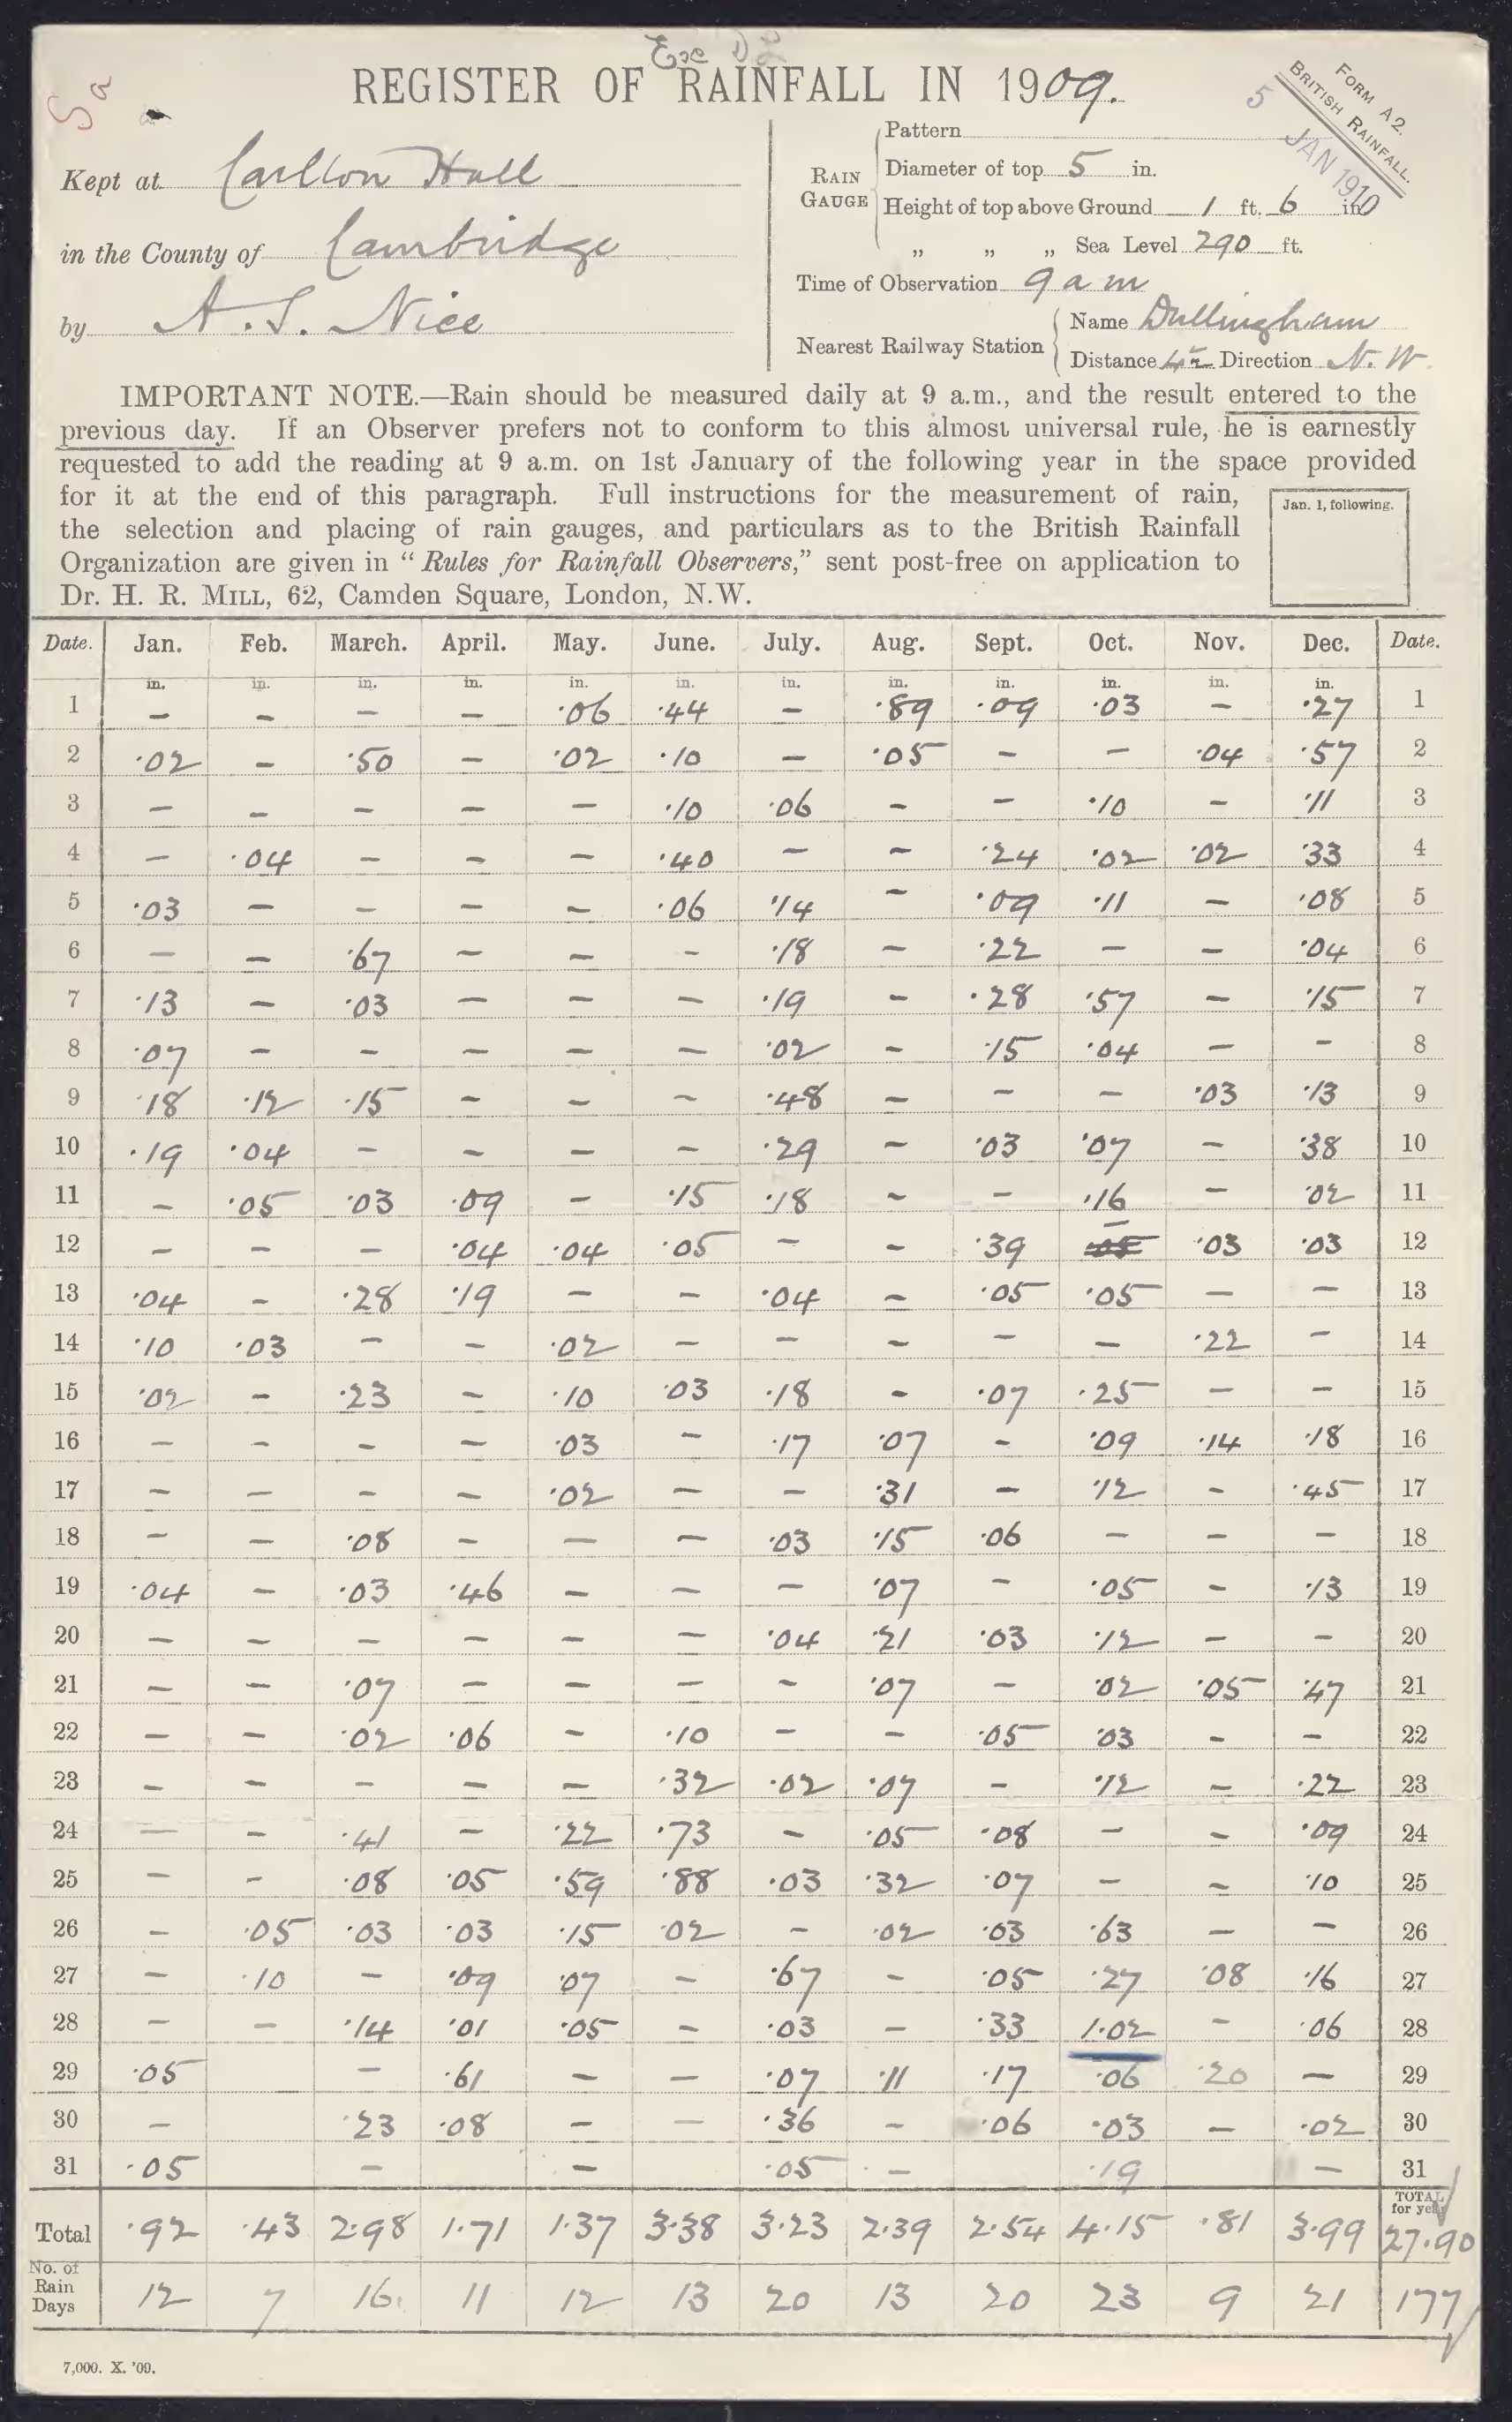 Exc D L
REGISTER OF RAINFALL IN 1909.
Sa
FORM A 2.
BRITISH RAINFALL.
5 JAN 1910
Kept at Carlton Hall
in the County of Cambridge
by A. S. Nice
RAIN GAUGE
Pattern
Diameter of top 5 in.
Height of top above Ground 1 ft. 6 in.
„ „ „ Sea Level 290 ft.
Time of Observation 9 a m
Nearest Railway Station
Name Dullingham
Distance 4½ Direction N. W.
IMPORTANT NOTE.—Rain should be measured daily at 9 a.m., and the result entered to the
previous day. If an Observer prefers not to conform to this almost universal rule, he is earnestly
requested to add the reading at 9 a.m. on 1st January of the following year in the space provided
for it at the end of this paragraph. Full instructions for the measurement of rain,
the selection and placing of rain gauges, and particulars as to the British Rainfall
Organization are given in “Rules for Rainfall Observers,” sent post-free on application to
Dr. H. R. MILL, 62, Camden Square, London, N.W.
Jan. 1, following.
Date. Jan. Feb. March. April. May. June. July. Aug. Sept. Oct. Nov. Dec. Date.
in. in. in. in. in. in. in. in. in. in. in. in.
1 – – – – ·06 ·44 – ·89 ·09 ·03 – ·27 1
2 ·02 – ·50 – ·02 ·10 – ·05 – – ·04 ·57 2
3 – – – – – ·10 ·06 – – ·10 – ·11 3
4 – ·04 – – – ·40 – – ·24 ·02 ·02 ·33 4
5 ·03 – – – – ·06 ·14 – ·09 ·11 – ·08 5
6 – – ·67 – – – ·18 – ·22 – – ·04 6
7 ·13 – ·03 – – – ·19 – ·28 ·57 – ·15 7
8 ·07 – – – – – ·02 – ·15 ·04 – – 8
9 ·18 ·12 ·15 – – – ·48 – – – ·03 ·13 9
10 ·19 ·04 – – – – ·29 – ·03 ·07 – ·38 10
11 – ·05 ·03 ·09 – ·15 ·18 – – ·16 – ·02 11
12 – – – ·04 ·04 ·05 – – ·39 – ·05 ·03 ·03 12
13 ·04 – ·28 ·19 – – ·04 – ·05 ·05 – – 13
14 ·10 ·03 – – ·02 – – – – – ·22 – 14
15 ·02 – ·23 – ·10 ·03 ·18 – ·07 ·25 – – 15
16 – – – – ·03 – ·17 ·07 – ·09 ·14 ·18 16
17 – – – – ·02 – – ·31 – ·12 – ·45 17
18 – – ·08 – – – ·03 ·15 ·06 – – – 18
19 ·04 – ·03 ·46 – – – ·07 – ·05 – ·13 19
20 – – – – – – ·04 ·21 ·03 ·12 – – 20
21 – – ·07 – – – – ·07 – ·02 ·05 ·47 21
22 – – ·02 ·06 – ·10 – – ·05 ·03 – – 22
23 – – – – – ·32 ·02 ·07 – ·12 – ·22 23
24 – – ·41 – ·22 ·73 – ·05 ·08 – – ·09 24
25 – – ·08 ·05 ·59 ·88 ·03 ·32 ·07 – – ·10 25
26 – ·05 ·03 ·03 ·15 ·02 – ·02 ·03 ·63 – – 26
27 – ·10 – ·09 ·07 – ·67 – ·05 ·27 ·08 ·16 27
28 – – ·14 ·01 ·05 – ·03 – ·33 1·02 – ·06 28
29 ·05 – ·61 – – ·07 ·11 ·17 ·06 ·20 – 29
30 – ·23 ·08 – – ·36 – ·06 ·03 – ·02 30
31 ·05 – – ·05 – ·19 – 31
TOTAL for year
Total ·92 ·43 2·98 1·71 1·37 3·38 3·23 2·39 2·54 4·15 ·81 3·99 27·90
No. of Rain Days 12 7 16 11 12 13 20 13 20 23 9 21 177
7,000. X. '09.